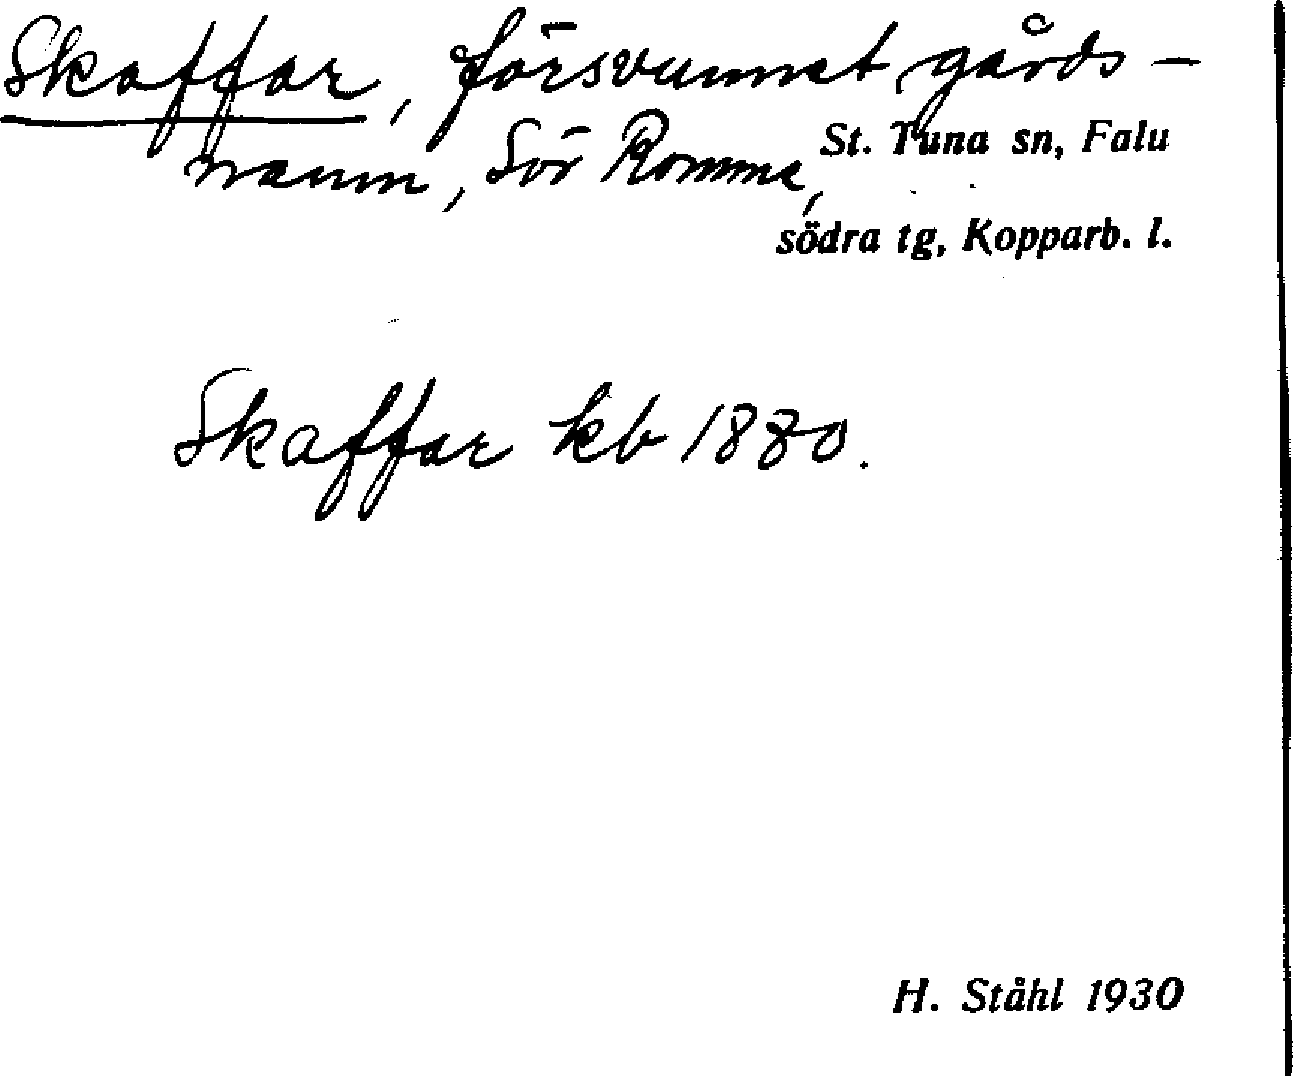 Skaffar, försvunnet gårds-
namn, Sör Romme, St. Tuna sn, Falu
södra tg, Kopparb. l.
Skaffar kb 1880.
H. Ståhl 1930